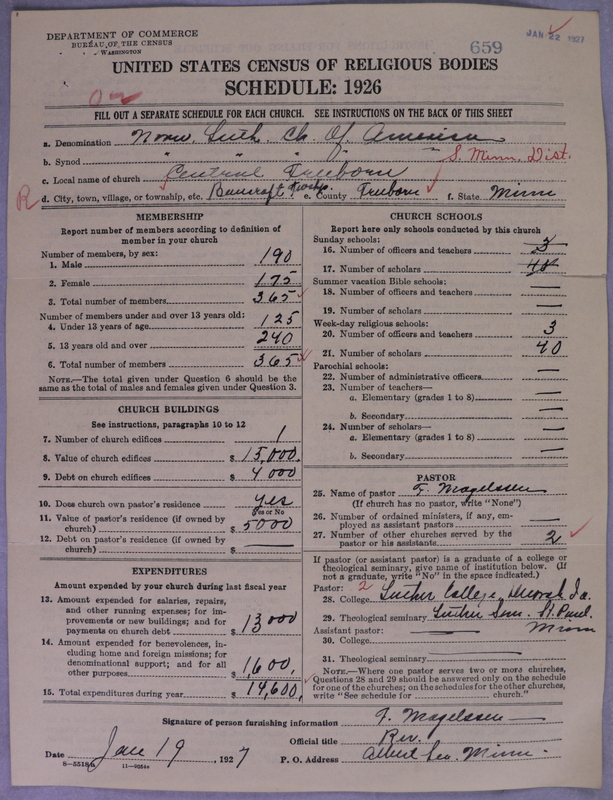 DEPARTMENT OF COMMERCE
BUREAU OF THE CENSUS
WASHINGTON
659
JAN 22 1927
UNITED STATES CENSUS OF RELIGIOUS BODIES
SCHEDULE: 1926
FILL OUT A SEPARATE SCHEDULE FOR EACH CHURCH. SEE INSTRUCTIONS ON THE BACK OF THIS SHEET
a. Denomination Norw. Luth. Ch. Of America
b. Synod " " " S. Minn. Dist.
c. Local name of church Central Freeborn
R
d. City, town, village, or township, etc. Bancroft Twshp. e. County Freeborn f. State Minn
MEMBERSHIP
Report number of members according to definition of
member in your church
Number of members, by sex:
1. Male 190
2. Female 175
3. Total number of members 365
Number of members under and over 13 years old:
4. Under 13 years of age 125
5. 13 years old and over 240
6. Total number of members 365
NOTE.—The total given under Question 6 should be
the same as the total of males and females given under Question 3.
CHURCH BUILDINGS
See instructions, paragraphs 10 to 12
7. Number of church edifices 1
8. Value of church edifices $ 15,000.
9. Debt on church edifices $ 4000
10. Does church own pastor's residence yes
Yes or No
11. Value of pastor's residence (if owned by
church) $ 5000
12. Debt on pastor's residence (if owned by
church) $ —
EXPENDITURES
Amount expended by your church during last fiscal year
13. Amount expended for salaries, repairs,
and other running expenses; for im-
provements or new buildings; and for
payments on church debt $ 13000
14. Amount expended for benevolences, in-
cluding home and foreign missions; for
denominational support; and for all
other purposes $ 1,600,
15. Total expenditures during year $ 14,600,
CHURCH SCHOOLS
Report here only schools conducted by this church
Sunday schools:
16. Number of officers and teachers 3
17. Number of scholars 40
Summer vacation Bible schools:
18. Number of officers and teachers —
19. Number of scholars —
Week-day religious schools:
20. Number of officers and teachers 3
21. Number of scholars 40
Parochial schools:
22. Number of administrative officers —
23. Number of teachers—
a. Elementary (grades 1 to 8) —
b. Secondary —
24. Number of scholars—
a. Elementary (grades 1 to 8) —
b. Secondary —
PASTOR
25. Name of pastor T. Magelssen
(If church has no pastor, write "None")
26. Number of ordained ministers, if any, em-
ployed as assistant pastors —
27. Number of other churches served by the
pastor or his assistants 2
If pastor (or assistant pastor) is a graduate of a college or
theological seminary, give name of institution below. (If
not a graduate, write "No" in the space indicated.)
Pastor: 2
28. College Luther College, Decorah Ia.
29. Theological seminary Luther Sem. St. Paul.
Minn
Assistant pastor: —
30. College
31. Theological seminary —
NOTE.—Where one pastor serves two or more churches,
Questions 28 and 29 should be answered only on the schedule
for one of the churches; on the schedules for the other churches,
write "See schedule for church."
Signature of person furnishing information T. Magelssen
Official title Rev.
Date Jan 19, 1927 P. O. Address Albert Lea. Minn.
8-5518a 11-9254a